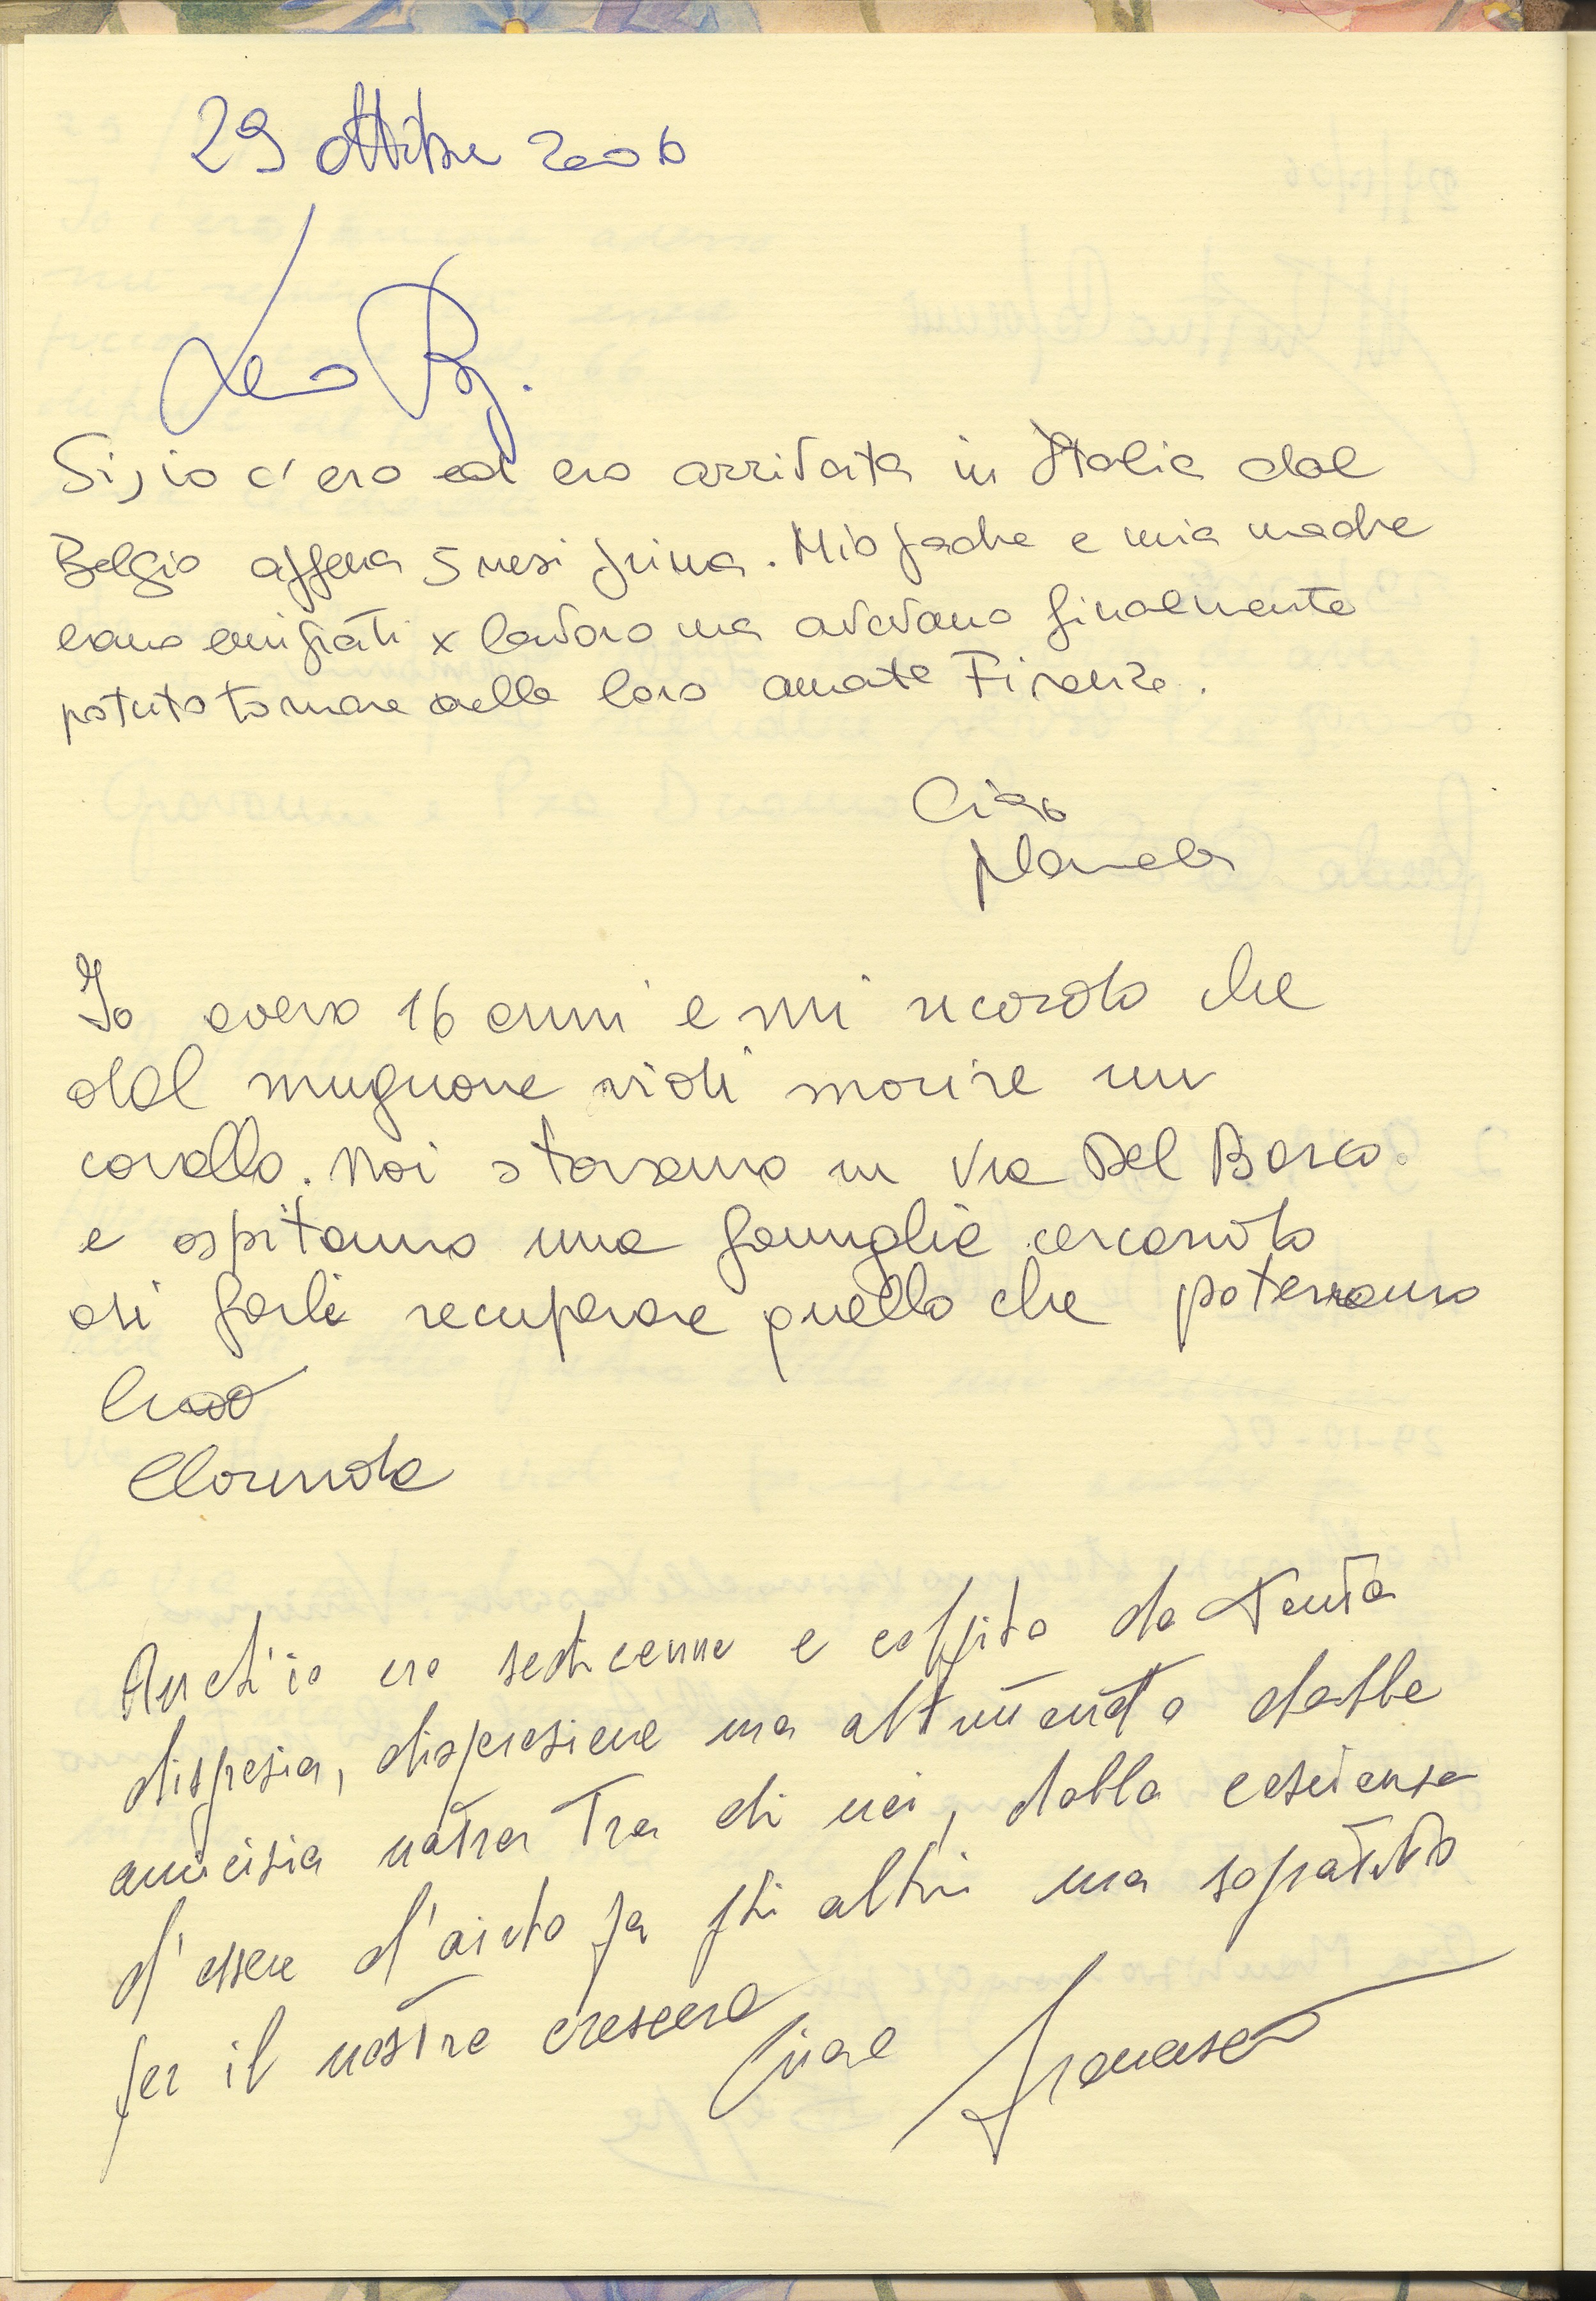 29 ottobre 2006
Leo B.
Si, io c'ero ed ero arrivata in Italia dal
Belgio appena 5 mesi prima. Mio padre e mia madre
erano emigrati x lavoro ma avevano finalmente
potuto tornare nella loro amata Firenze.
Ciao
Manuela
Io avevo 16 anni e mi ricordo che
dal mugnone vidi morire un
cavallo. Noi stavamo in Via Del Barco.
e ospitammo una famiglia cercando
di farli recuperare quello che potevano
Ciao
Clorinda
Anch'io ero sedicenne e colpito da tanta
disgrazia, disperazione ma altrettanto dalla
amicizia natra tra di noi, dalla coscienza
d'essere d'aiuto per gli altri ma sopratutto
per il nostro crescere
Ciao Francesco